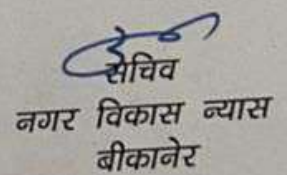 सचिव
नगर विकास न्यास
बीकानेर